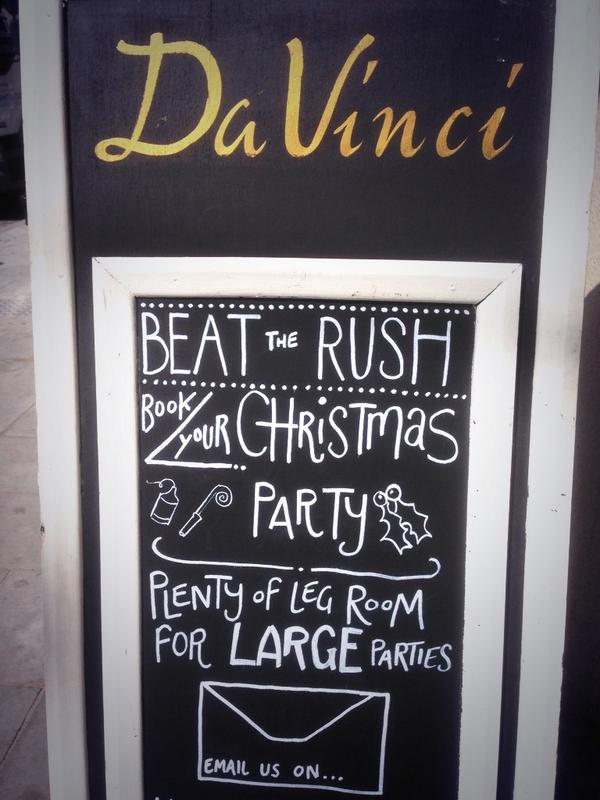 Da Vinci
BEAT THE RUSH
BOOK YOUR CHRISTMAS
PARTY
PLENTY OF LEG ROOM
FOR LARGE PARTIES
EMAIL US ON...